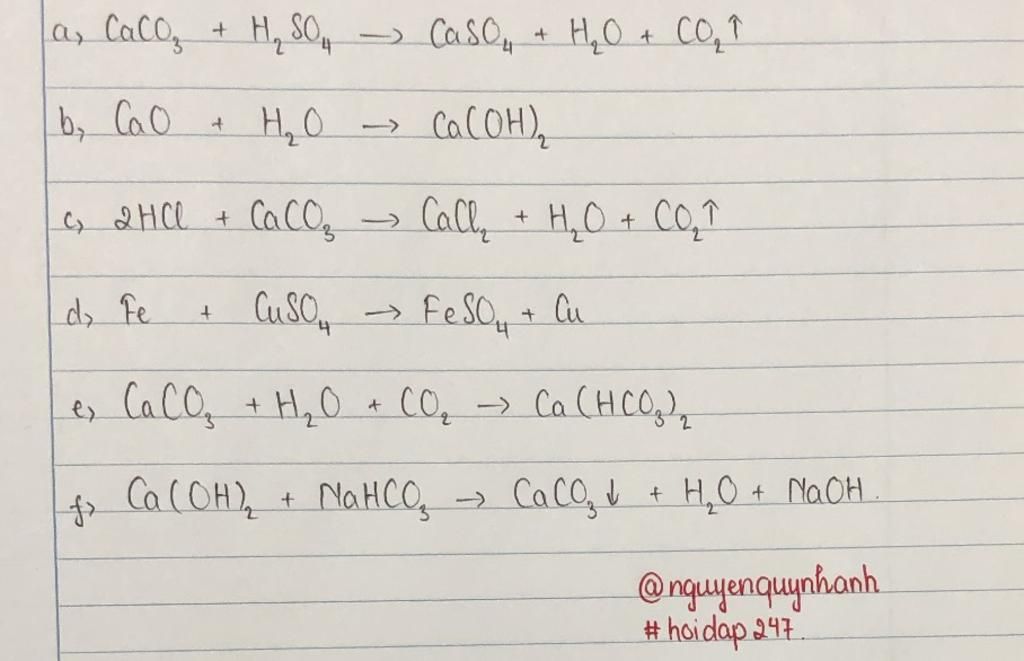 a, CaCO₃ + H₂SO₄ → CaSO₄ + H₂O + CO₂↑
b, CaO + H₂O → Ca(OH)₂
c, 2HCl + CaCO₃ → CaCl₂ + H₂O + CO₂↑
d, Fe + CuSO₄ → FeSO₄ + Cu
e, CaCO₃ + H₂O + CO₂ → Ca(HCO₃)₂
f, Ca(OH)₂ + NaHCO₃ → CaCO₃↓ + H₂O + NaOH.
@nguyenquynhanh
#hoidap247.